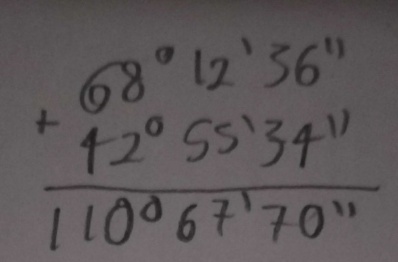 68° 12' 36"
+ 42° 55' 34"
110° 67' 70"